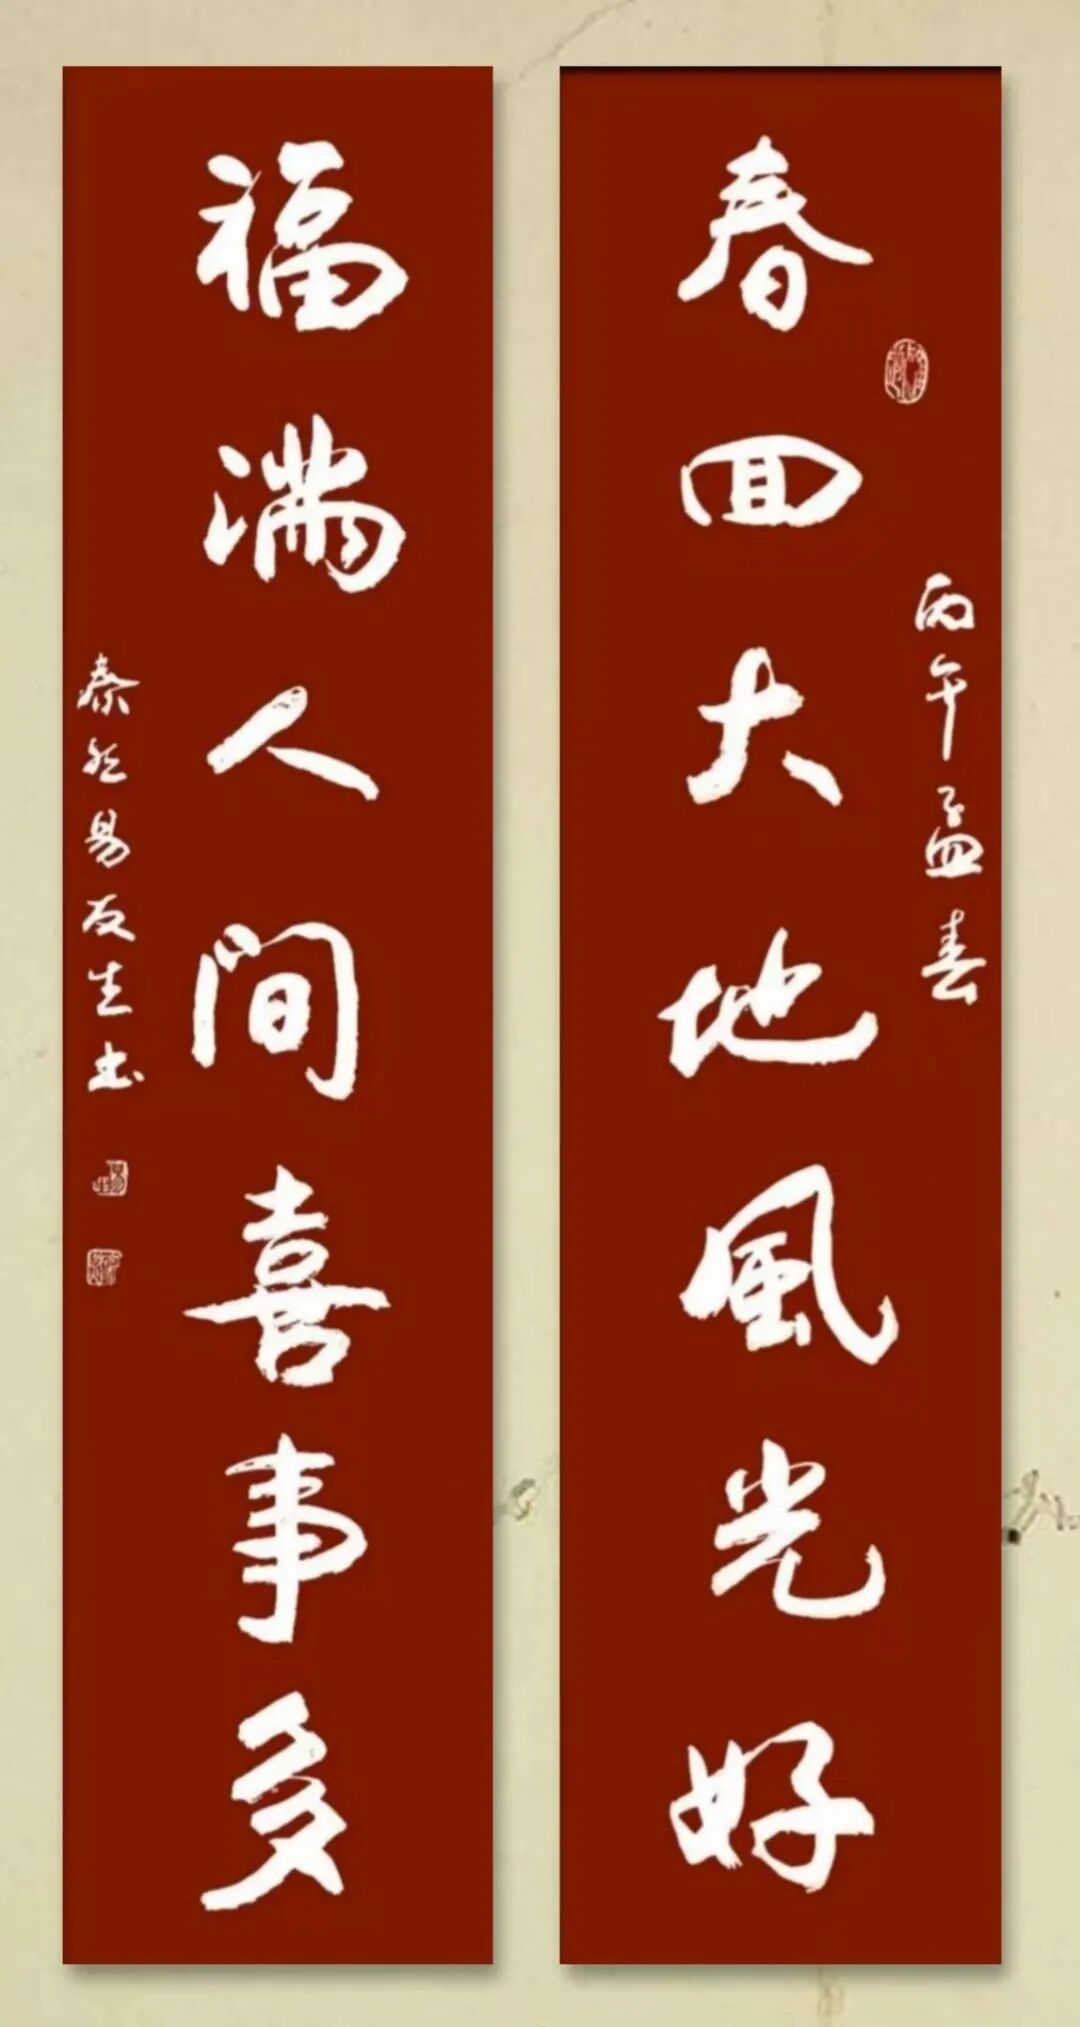 春回大地風光好
丙午孟春
福满人间喜事多
泰然易友生书